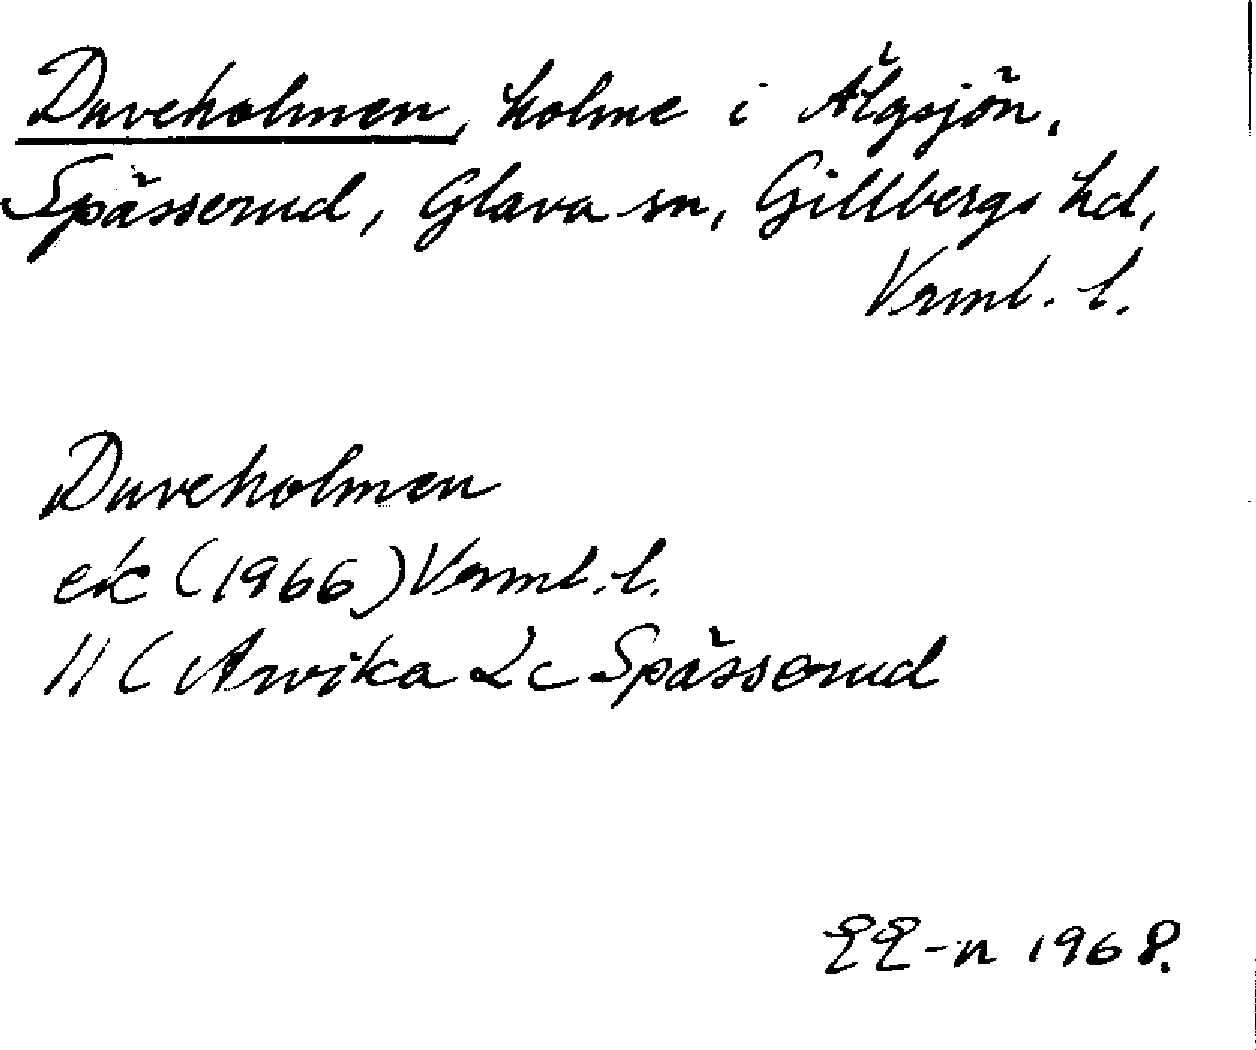 Duveholmen, holme i Älgsjön,
Spässerud, Glava sn, Gillbergs hd,
Vrml. l.
Duveholmen
ek (1966) Vrml. l.
11 C Arvika 2c Spässerud
EE-n 1968.